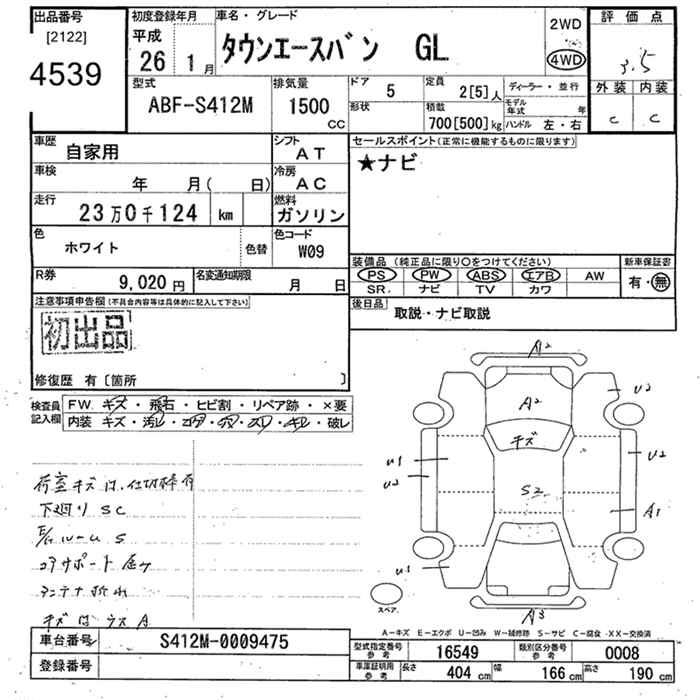 出品番号
[2122]
4539
初度登録年月
平成
26 1月
車名・グレード
タウンエースバン GL
2WD
4WD
評価点
3.5
外装 内装
C C
型式
ABF-S412M
排気量
1500
CC
ドア 5
定員 2[5]人
ディーラー・並行
形状
積載 700[500]kg
モデル年式 年
ハンドル 左・右
車歴 自家用
シフト AT
セールスポイント(正常に機能するものに限ります)
★ナビ
車検 年 月( 日)
冷房 AC
走行 23万0千124 km
燃料 ガソリン
色 ホワイト
色替
色コード W09
装備品(純正品に限り○をつけてください)
新車保証書
PS PW ABS エアB AW
SR ナビ TV カワ
有・無
R券 9,020円
名変通知期限 月 日
後日品
取説・ナビ取説
注意事項申告欄(不具合内容等は具体的に記入して下さい)
初出品
修復歴 有〔箇所 〕
検査員記入欄
FW キズ・飛石・ヒビ割・リペア跡・×要
内装 キズ・汚レ・コゲ・穴・スレ・キレ・破レ
A2
A2
U2
キズ
U1
U2
U2
S2
A1
U1
A3
スペア
荷室キズ凹、仕切枠有
下廻りSC
E/gルームS
コアサポート歪み
アンテナ折れ
A-キズ E-エクボ U-凹み W-補修跡 S-サビ C-腐食 XX-交換済
車台番号 S412M-0009475
登録番号
型式指定番号 参考 16549
類別区分番号 参考 0008
車庫証明用 参考 長さ 404 cm 幅 166 cm 高さ 190 cm